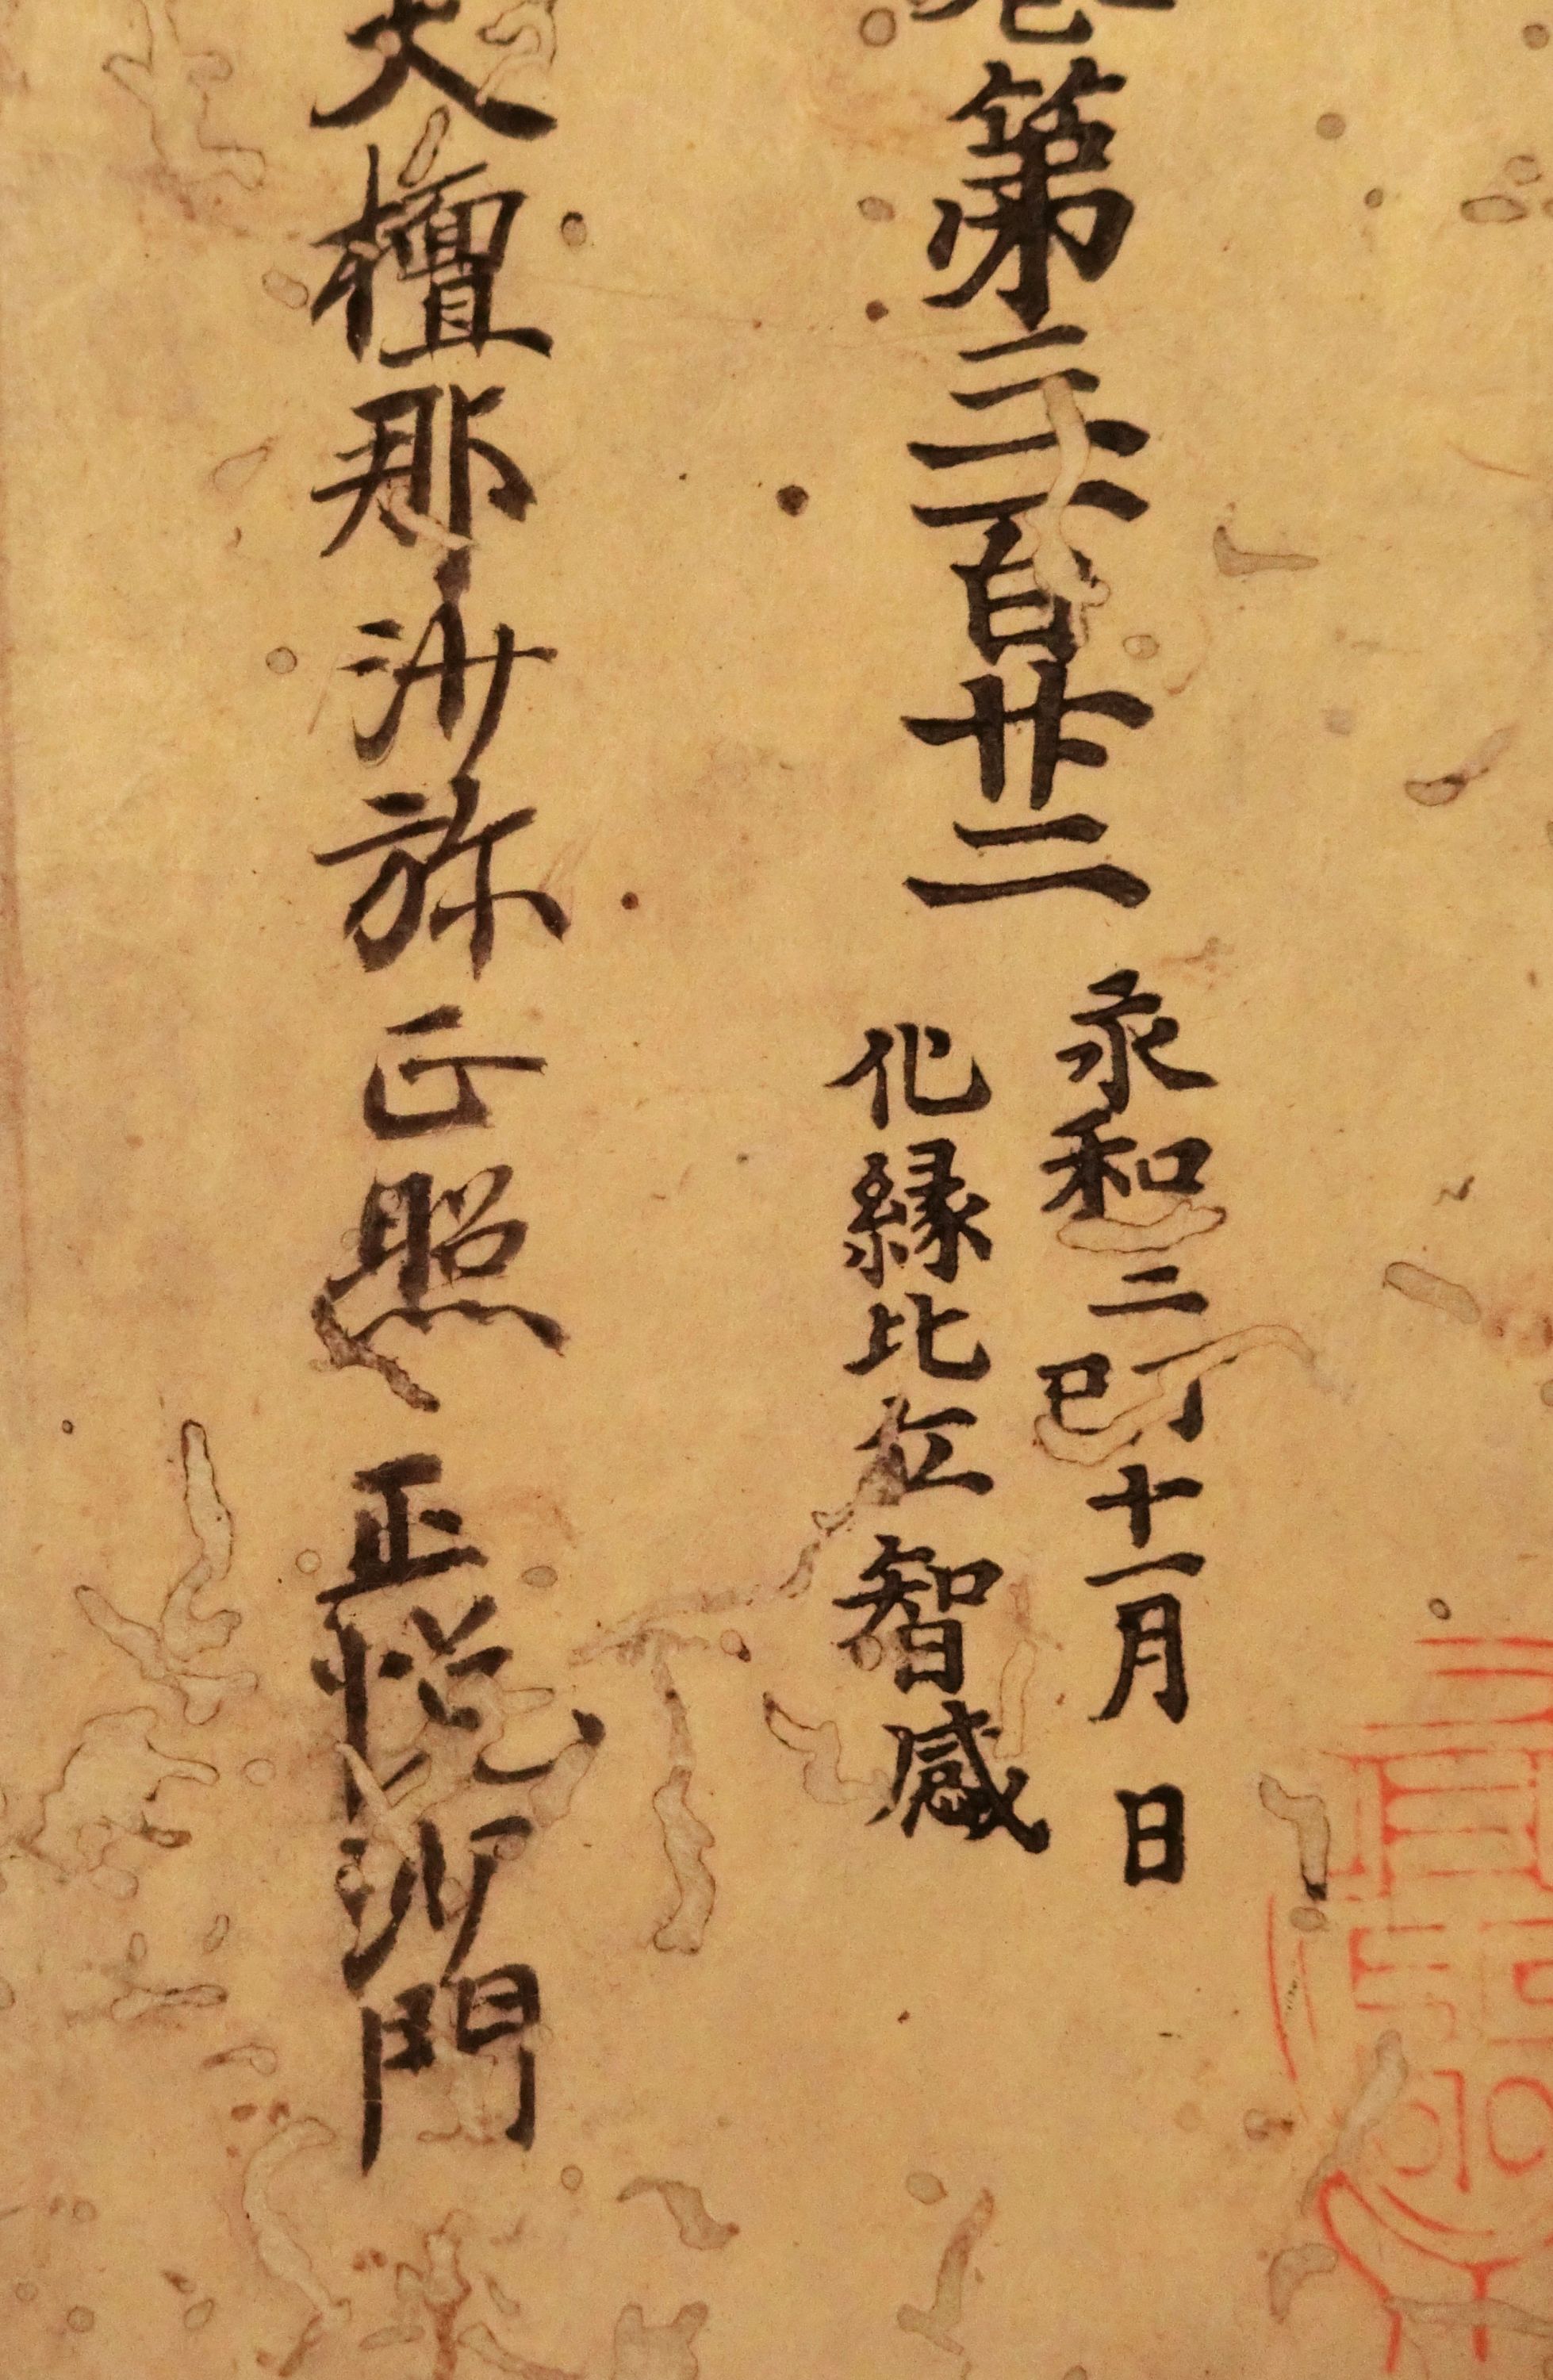 第三百廿二
永和三丁巳十一月 日
化縁比丘智感
大檀那沙弥正照 正悦沙門